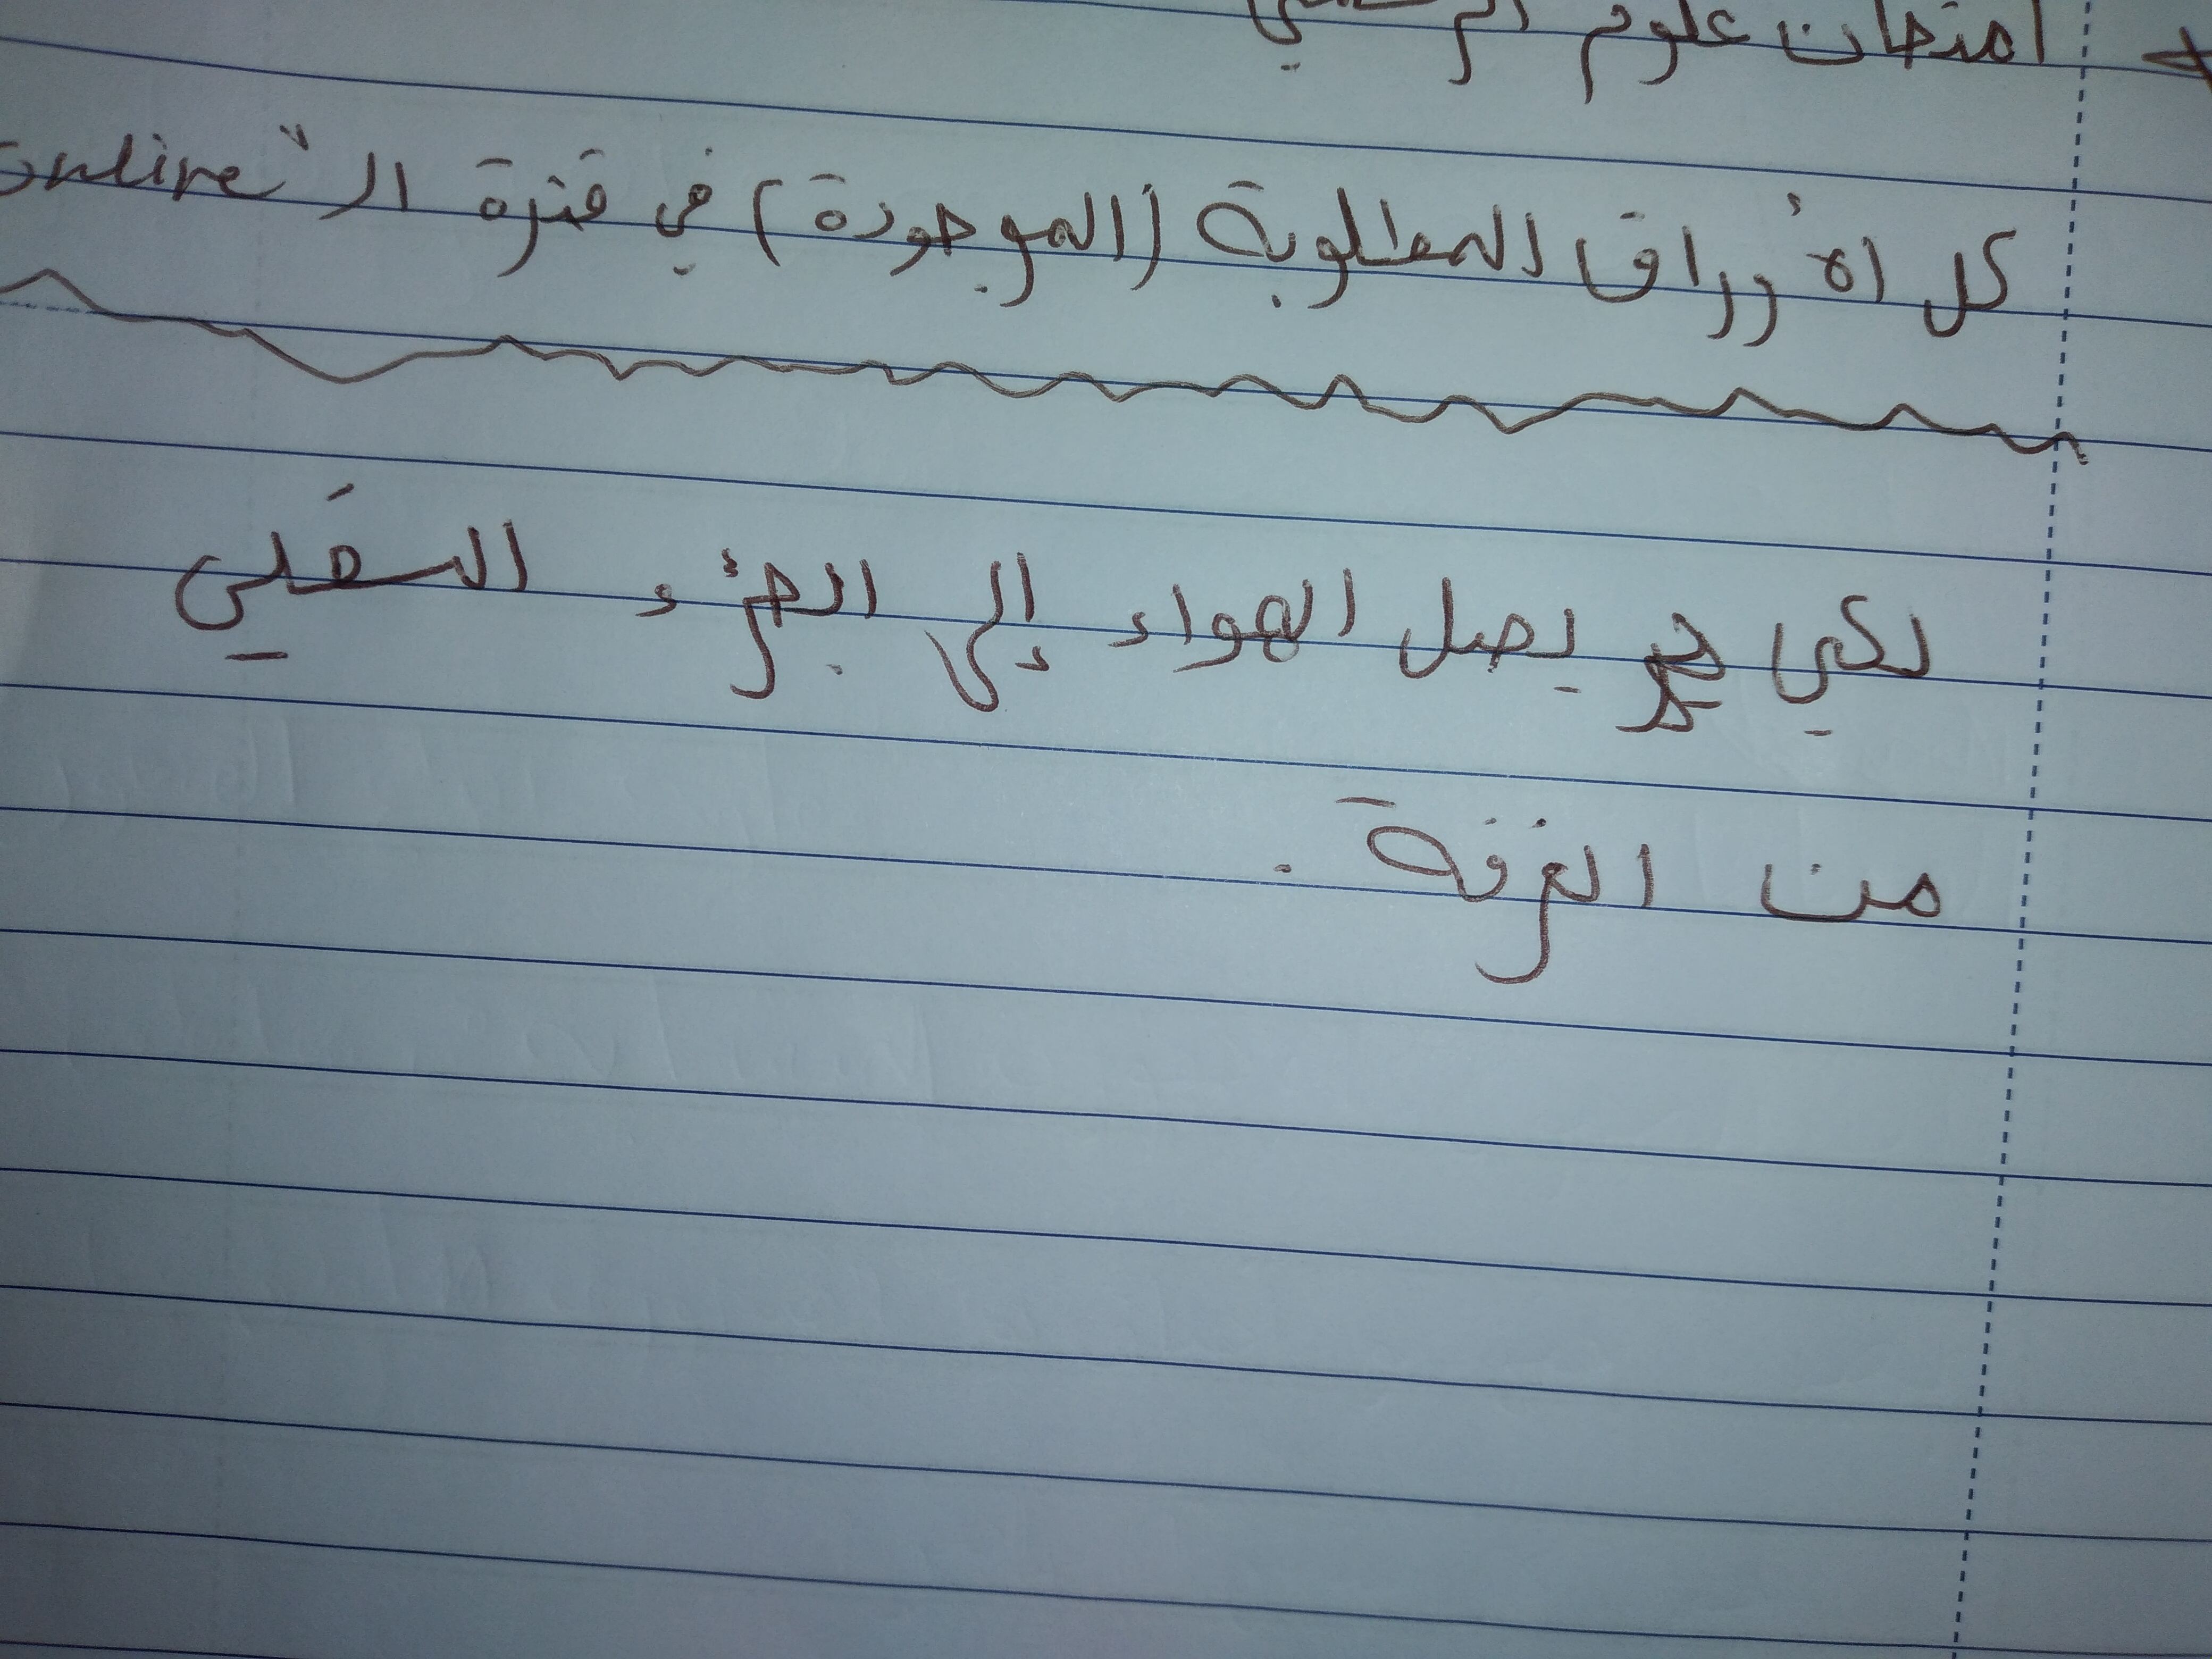 امتحان علوم
كل الأوراق المطلوبة (الموجودة) في فترة الـ "online
لكي يصل الهواء إلى الجزء السفلي
من الغرفة .